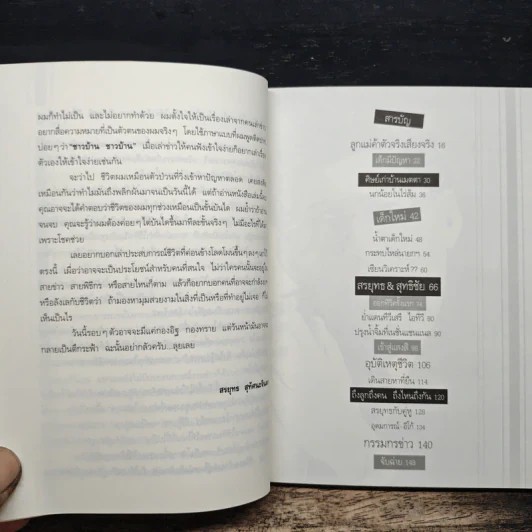 ผมก็ทำไม่เป็น และไม่อยากทำด้วย ผมตั้งใจให้เป็นเรื่องเล่าจากคนเล่าข่าว
อยากสื่อความหมายที่เป็นตัวตนของผมจริงๆ โดยใช้ภาษาแบบที่ผมพูดติดปาก
บ่อยๆว่า "ชาวบ้าน ชาวบ้าน" เมื่อเล่าข่าวให้คนฟังเข้าใจง่ายก็อยากเล่าเรื่อง
ตัวเองให้เข้าใจง่ายเช่นกัน
จะว่าไป ชีวิตผมเหมือนตัวป่วนที่วิ่งเข้าหาปัญหาตลอด
เหมือนกันว่าทำไมมันถึงพลิกผันมาจนเป็นวันนี้ได้ แต่ถ้าอ่านหนังสือเล่มนี้
คุณอาจจะได้คำตอบว่าชีวิตของผมทุกช่วงเหมือนเป็นขั้นบันได ผมย้ำว่าถ้าอ่าน
จนจบ คุณจะรู้ว่าผมต้องค่อยๆไต่บันไดขึ้นมาทีละขั้นจริงๆ ไม่มีอะไรที่ได้มา
เพราะโชคช่วย
เลยอยากบอกเล่าประสบการณ์ชีวิตที่ค่อนข้างโลดโผนขึ้นๆลงๆ
ตรงนี้ เผื่อว่าอาจจะเป็นประโยชน์สำหรับคนที่สนใจ ไม่ว่าใครคนนั้นจะอยู่ใน
สายข่าว สายพิธีกร หรือสายไหนก็ตาม แล้วก็อยากบอกคนที่อาจจะกำลังท้อ
หรือลังเลกับชีวิตว่า ถ้ามองหามุมสวยงามในสิ่งที่เป็นหรือที่ทำอยู่ไม่เจอ ก็ไม่
เห็นเป็นไร
วันนี้รอบๆตัวอาจจะมีแค่กองอิฐ กองทราย แต่วันหน้ามันอาจจะ
กลายเป็นตึกระฟ้า ฉะนั้นอย่ากลัวครับ...ลุยเลย
สรยุทธ สุทัศนะจินดา
สารบัญ
ลูกแม่ค้าตัวจริงเสียงจริง 16
เด็กมีปัญหา 22
ศิษย์เก่าบ้านเมตตา 30
นกน้อยในไร่ส้ม 36
เด็กใหม่ 42
น้ำตาเด็กใหม่ 48
กระทบไหล่นายกฯ 54
เซียนวิเคราะห์?? 60
สรยุทธ & สุทธิชัย 66
ออกทีวีครั้งแรก 74
ย่ำแดนทีวีเสรี ไอทีวี 80
ปรุงน้ำจิ้มที่เนชั่นแชนแนล 90
เข้าสู่แสงสี 96
อุบัติเหตุชีวิต 106
เดินสายหาที่ยืน 114
ถึงลูกถึงคน ถึงไหนถึงกัน 120
สรยุทธกับคู่หู 128
อุดมการณ์-อีโก้ 134
กรรมกรข่าว 140
จับฉ่าย 148